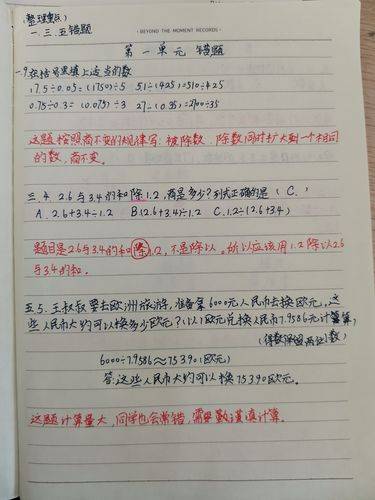 (整理重点)
一.三.五错题
· BEYOND THE MOMENT RECORDS ·
第一单元 错题
一.9.在括号里填上适当的数
17.5÷0.05=(1750)÷5 5.1÷(4.25)=510÷425
0.75÷0.3=(0.075)÷3 27÷(0.35)=2700÷35
这题按照商不变的规律写:被除数、除数同时扩大到一个相同
的数,商不变。
三.4. 2.6与3.4的和除1.2,商是多少?列式正确的是(C.)
A. 2.6+3.4÷1.2 B.(2.6+3.4)÷1.2 C.1.2÷(2.6+3.4)
题目是2.6与3.4的和除1.2,不是除以。所以应该用1.2除以2.6
与3.4的和。
五.5. 王叔叔要去欧洲旅游,准备拿6000元人民币去换欧元,这
些人民币大约可以换多少欧元?(以1欧元兑换人民币7.9586元计算)
(得数保留两位小数)
6000÷7.9586≈753.90(欧元)
答:这些人民币大约可以换753.90欧元。
这题计算量大,同学也会常错,需要谨慎计算。